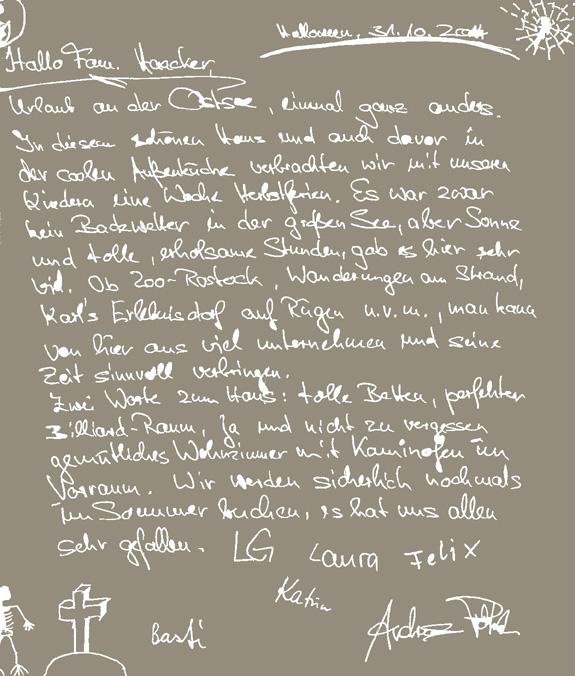 Halloween, 31.10.2004
Hallo Fam. Haacker,
Urlaub an der Ostsee, einmal ganz anders.
In diesem schönen Haus und auch davor in
der coolen Außenküche verbrachten wir mit unseren
Kindern eine Woche Herbstferien. Es war zwar
kein Badewetter in der großen See, aber Sonne
und tolle, erholsame Stunden, gab es hier sehr
viel. Ob Zoo-Rostock, Wanderungen am Strand,
Karl's Erlebnisdorf auf Rügen u.v.m., man kann
von hier aus viel unternehmen und seine
Zeit sinnvoll verbringen.
Zwei Worte zum Haus: tolle Betten, perfekter
Billiard-Raum, ja und nicht zu vergessen
gemütliches Wohnzimmer mit Kaminofen im
Vorraum. Wir werden sicherlich nochmals
im Sommer buchen, es hat uns allen
sehr gefallen. LG Laura Felix
Katrin
Basti Andreas